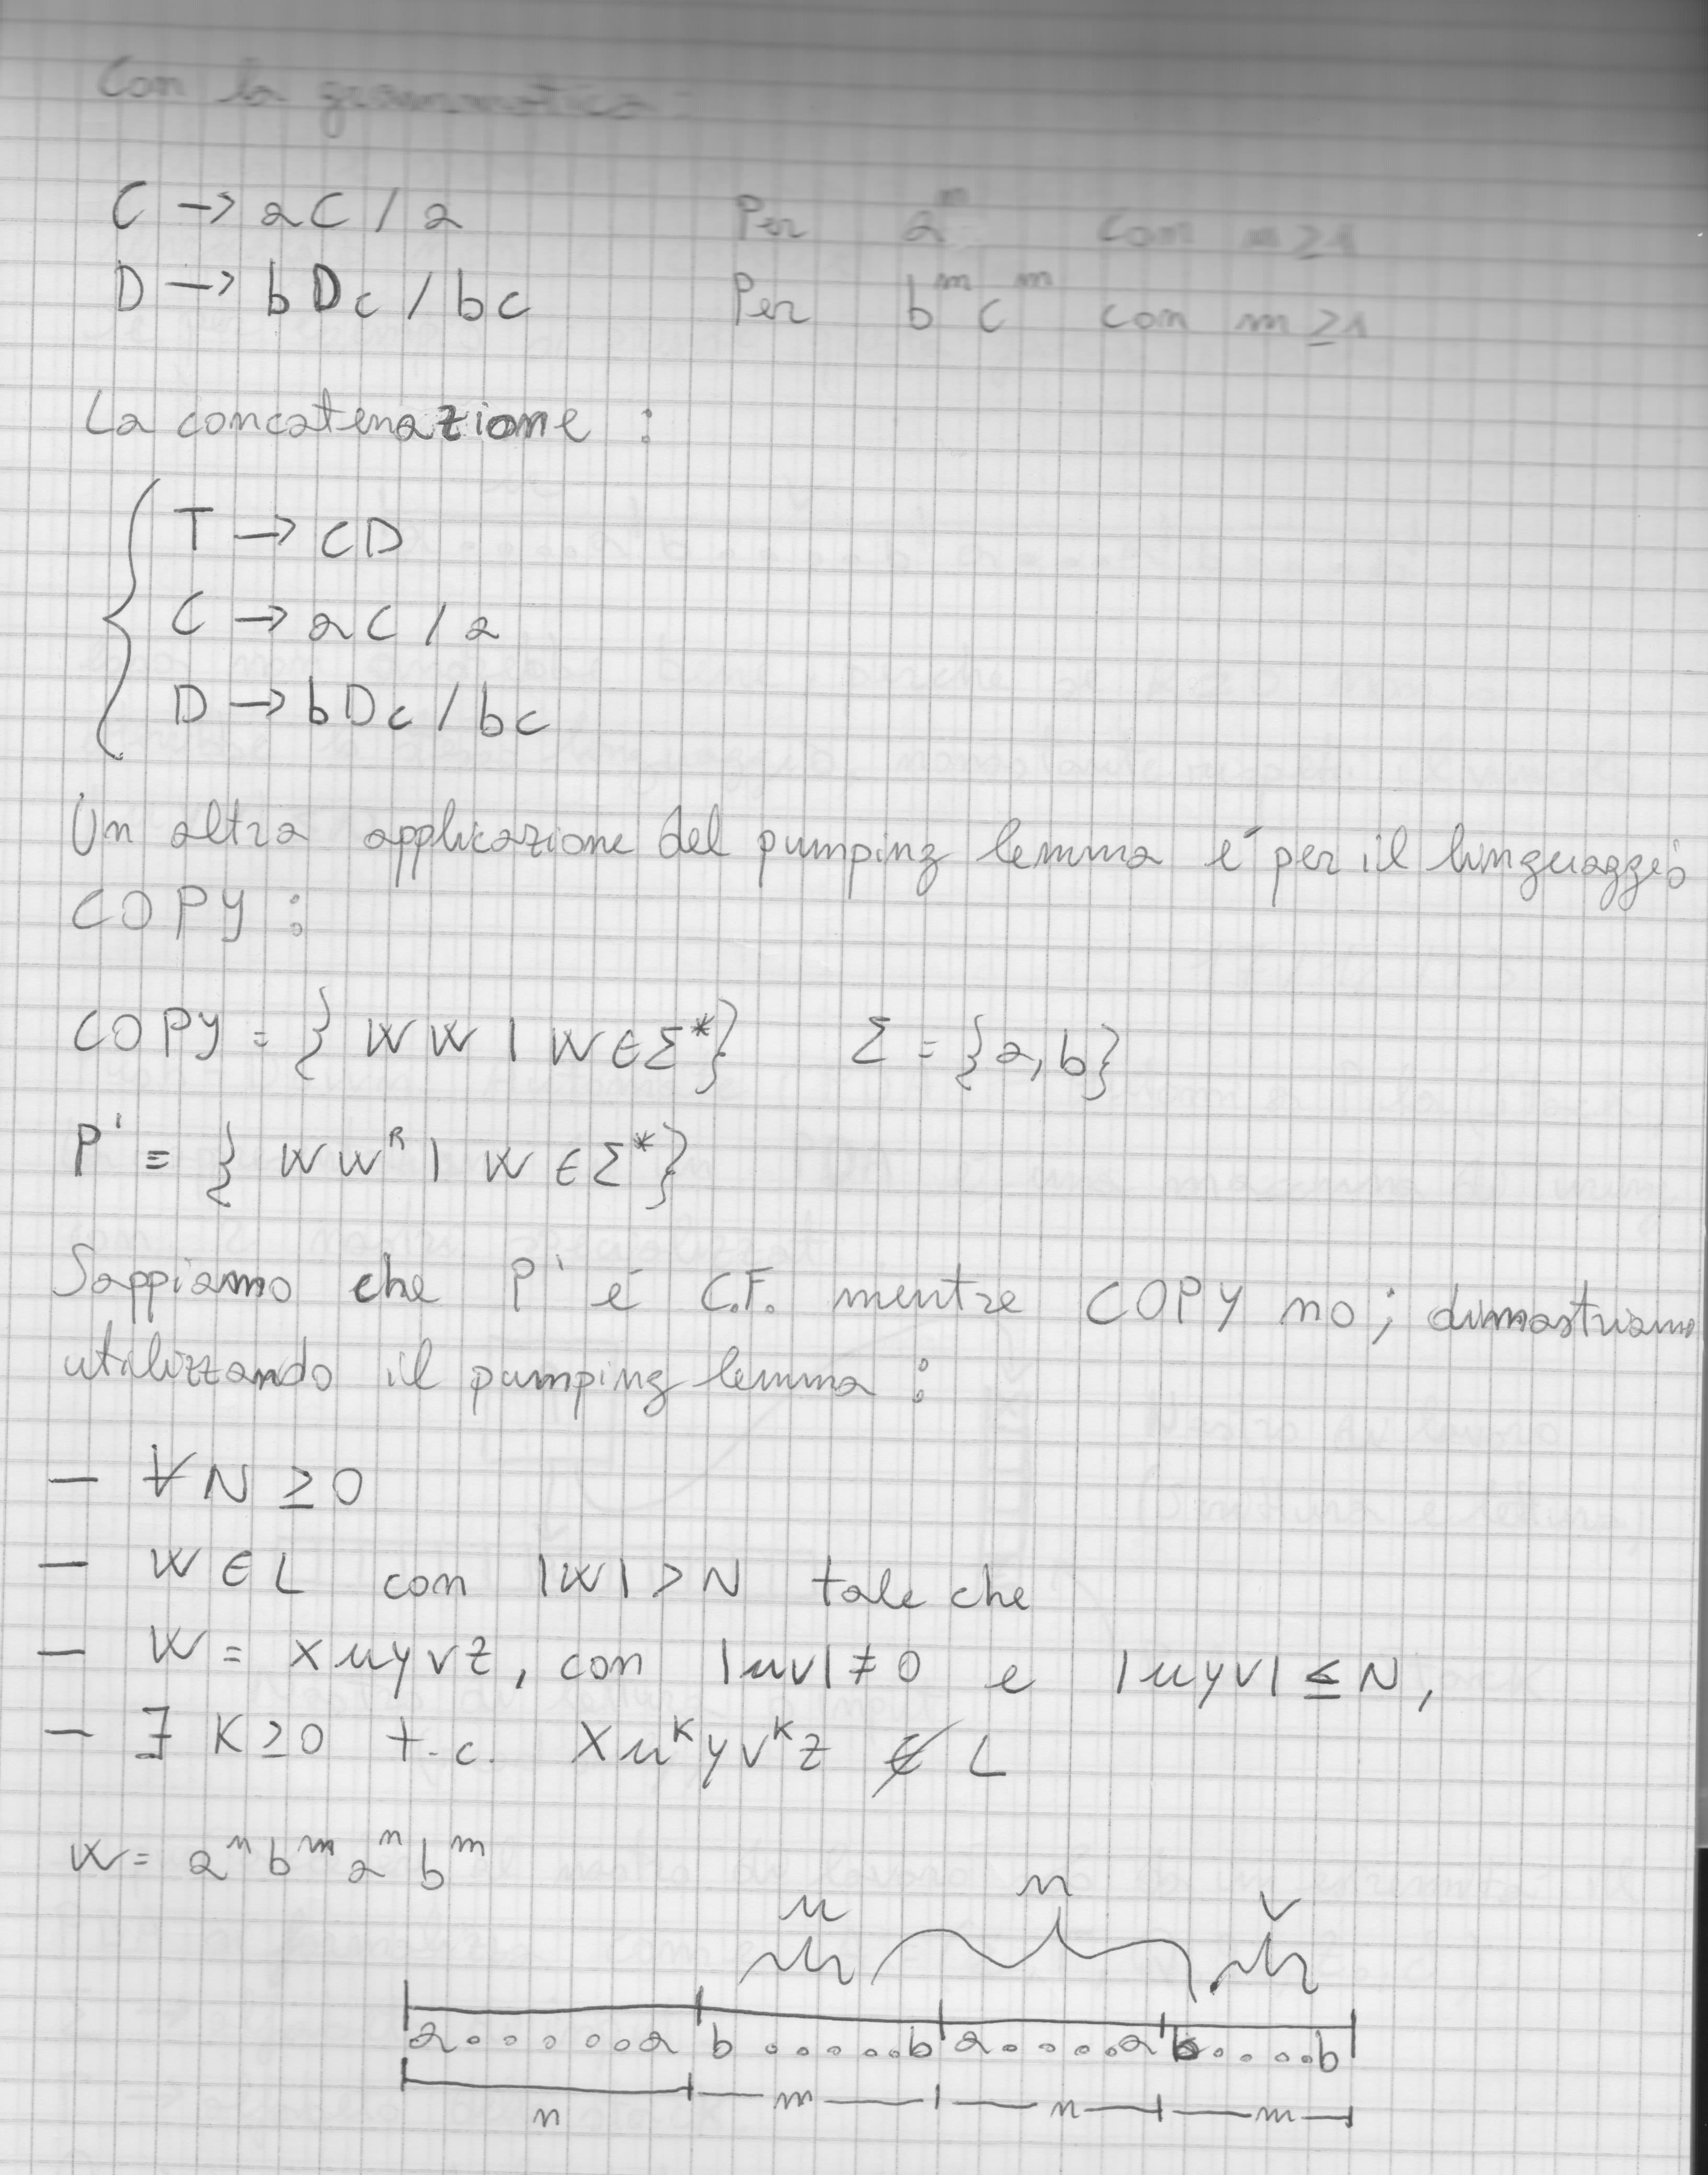 Con la grammatica:
C → aC / a Per a^n con n ≥ 1
D → bDc / bc Per b^m c^m con m ≥ 1
La concatenazione :
T → CD
C → aC / a
D → bDc / bc
Un altra applicazione del pumping lemma é per il linguaggio
COPY :
COPY = { WW | W ∈ Σ* } Σ = {a, b}
P' = { WW^R | W ∈ Σ* }
Sappiamo che P' é C.F. mentre COPY no ; dimostriamo
utilizzando il pumping lemma :
— ∀ N ≥ 0
— W ∈ L con |W| > N tale che
— W = xuyvz, con |uv| ≠ 0 e |uyv| ≤ N,
— ∃ K ≥ 0 t.c. xu^K yv^K z ∉ L
W = a^n b^m a^n b^m
u n v
a......a b.....b a.....a b.....b
n m n m